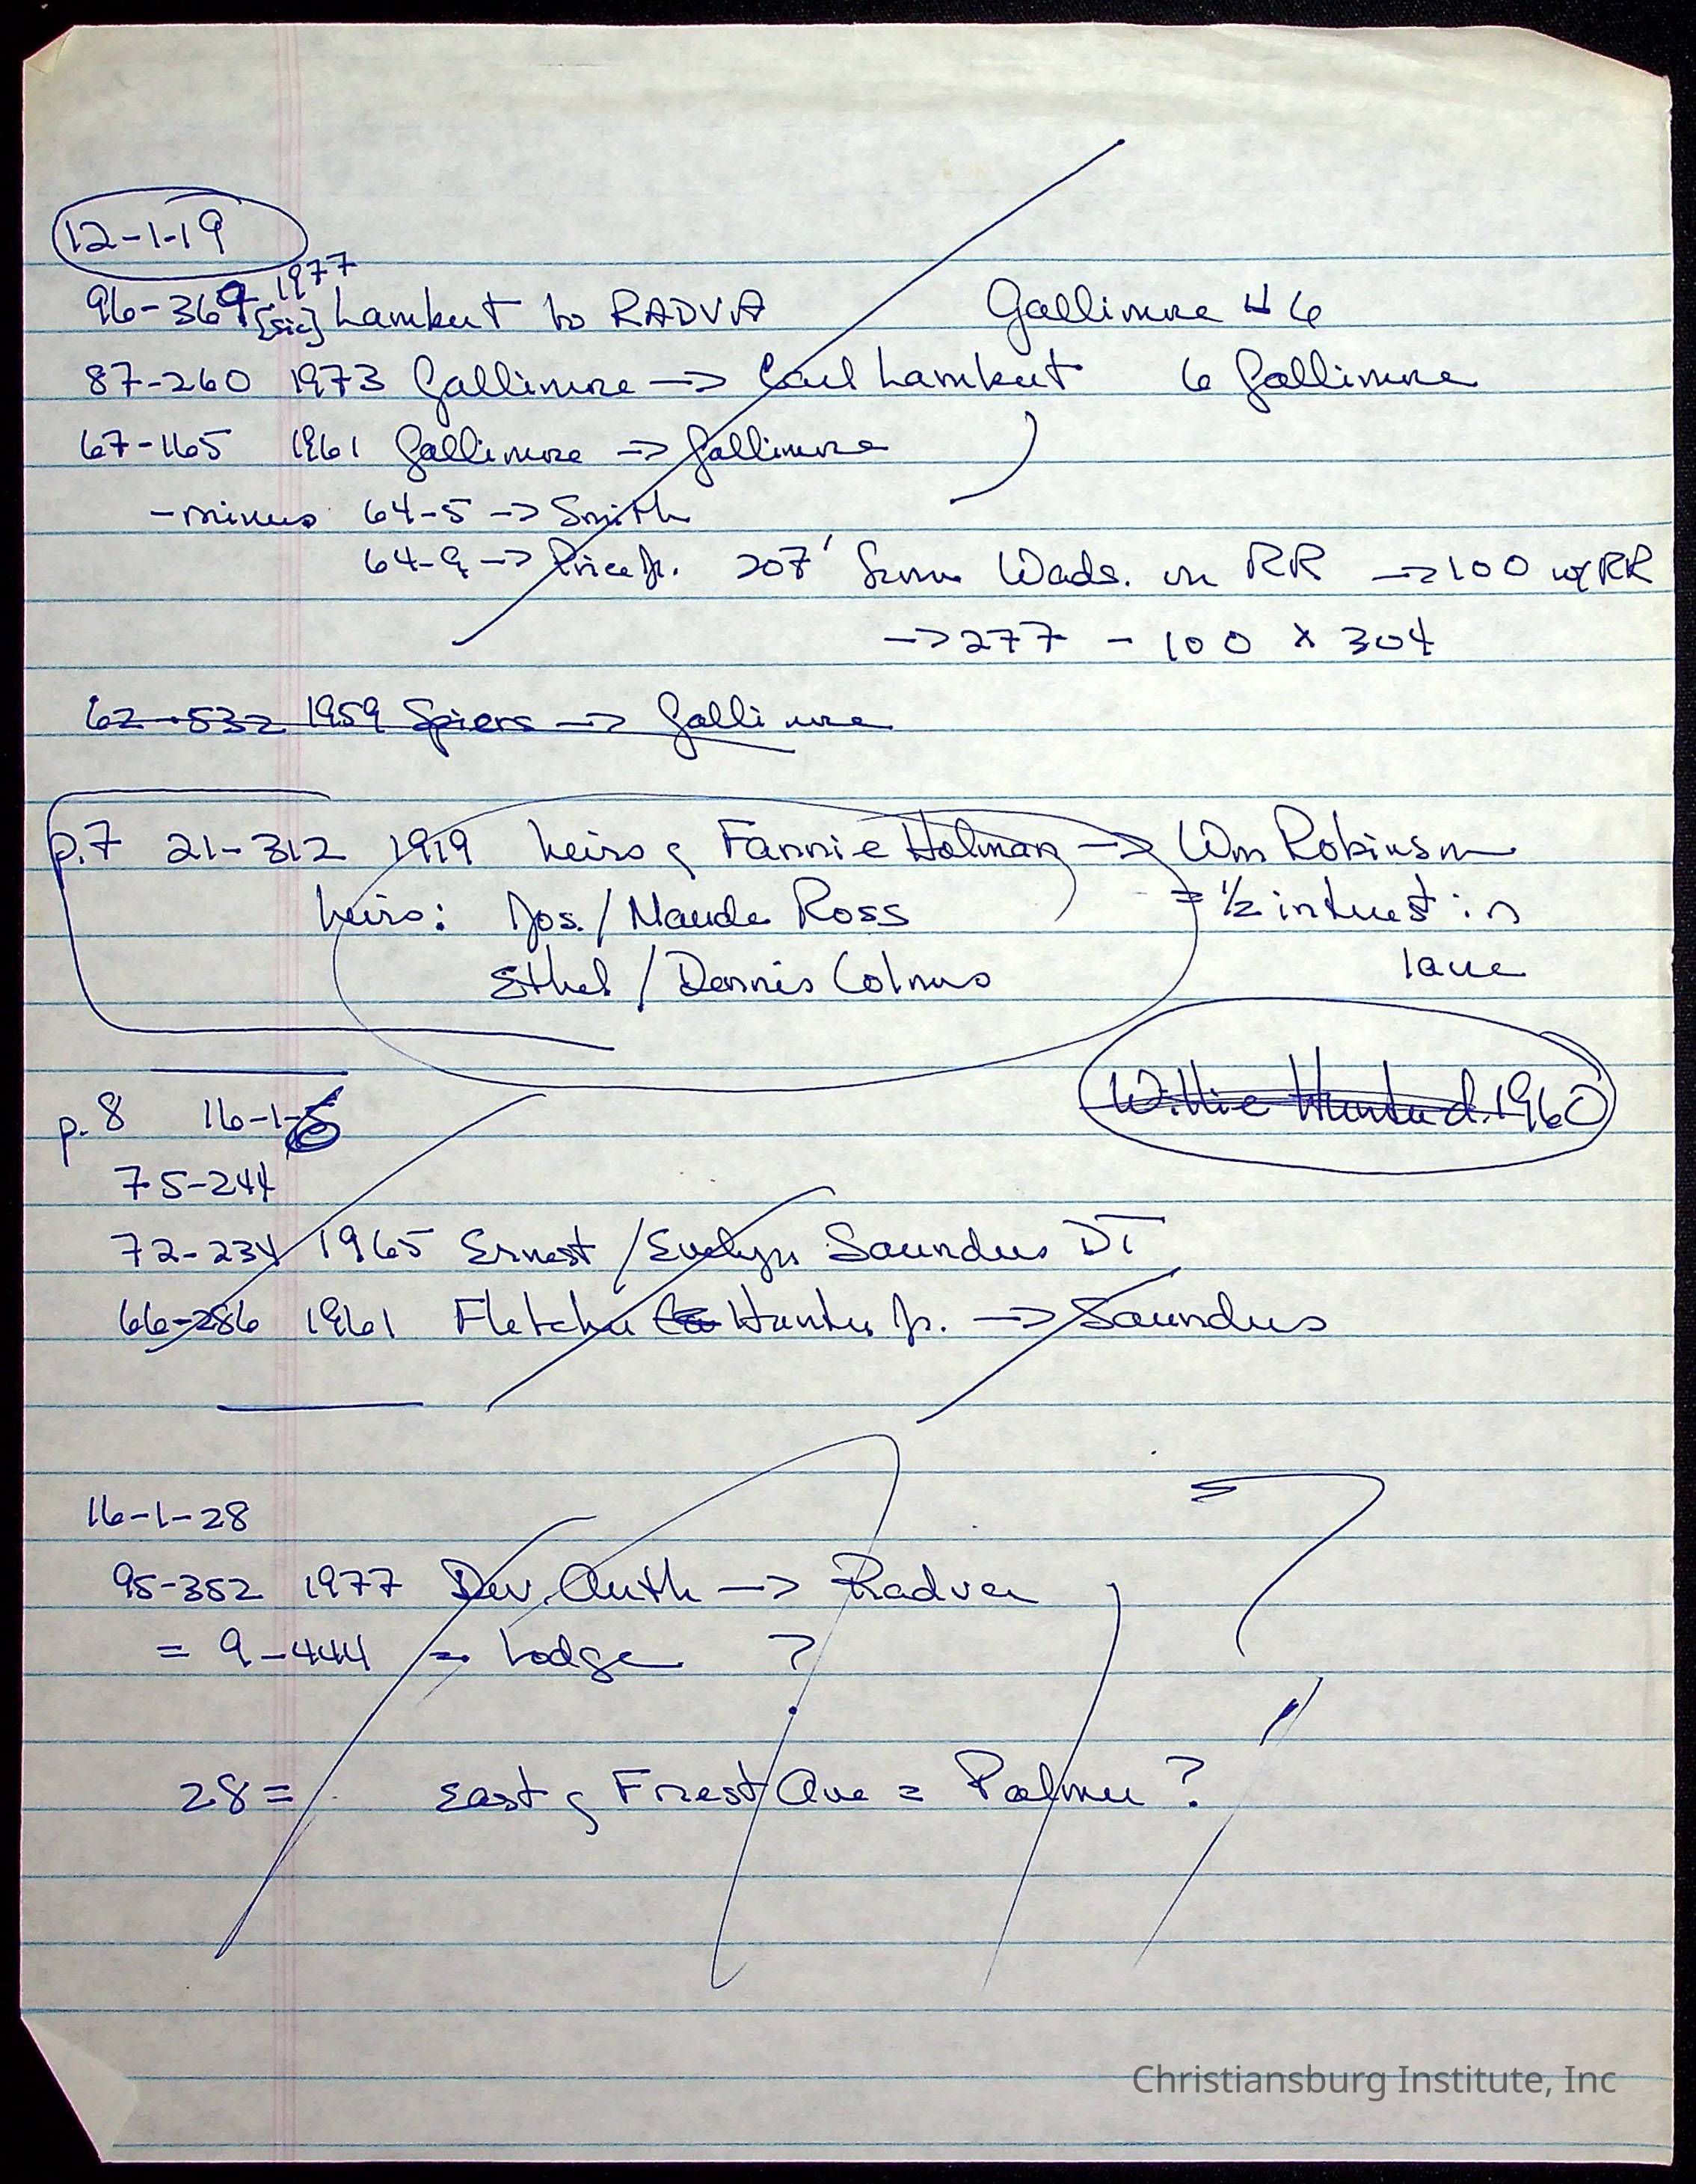 12-1-19
96-369 [sic] 1977 Lambert to RADVA Gallimore #6
87-260 1973 Gallimore -> Carl Lambert 6 Gallimore
67-165 1961 Gallimore -> Gallimore
- minus 64-5 -> Smith
64-9 -> Price Jr. 207' from Wads. on RR -> 100 w/ RR
-> 277 - 100 x 304
62-532 1959 Spiers -> Gallimore
p.7 21-312 1919 heirs of Fannie Holmes -> Wm Robinson
heirs: Jos. / Maude Ross = 1/2 interest in
Ethel / Dennis Colmus lane
Willie Hunter d. 1960
p. 8 16-1-6
75-244
72-234 1965 Ernest / Evelyn Saunders DT
66-286 1961 Fletcher Hunter Jr. -> Saunders
16-1-28
95-352 1977 Dev. Auth -> Radva
= 9-444 = Lodge ?
28 = east of Forest Ave = Palmer ?
Christiansburg Institute, Inc